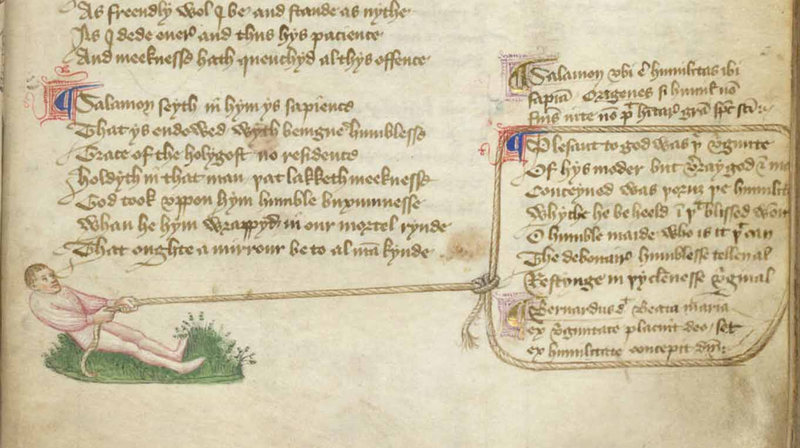 As freendly wol I be and stande as nythe
As I dede ever and thus hys pacience
And meeknesse hath quenchyd al thys offence
Salamon seyth in hym ys sapience
That ys endowed wyth benigne humblesse
Grace of the holygost no residence
Holdyth in that man þat lakketh meeknesse
God took vppon hym humble buxumnesse
Whan he hym wrappyd in our mortel rynde
That oughte a mirrour be to al mankynde
Salamon vbi est humilitas ibi
sapiencia Origenes si humil non
fueris non habitat gratia spiritus sancti
Plesant to god was þe virginite
Of hys moder but verray god & man
Conceyued was þorw þe humilite
Whyche he beheeld in þat blissed woman
O humble maide who is it þat can
The debonair humblesse tellen al
Restynge in þi clennesse virginal
Bernardus dicit Beata maria
ex virginitate placuit deo set
ex humilitate concepit deum